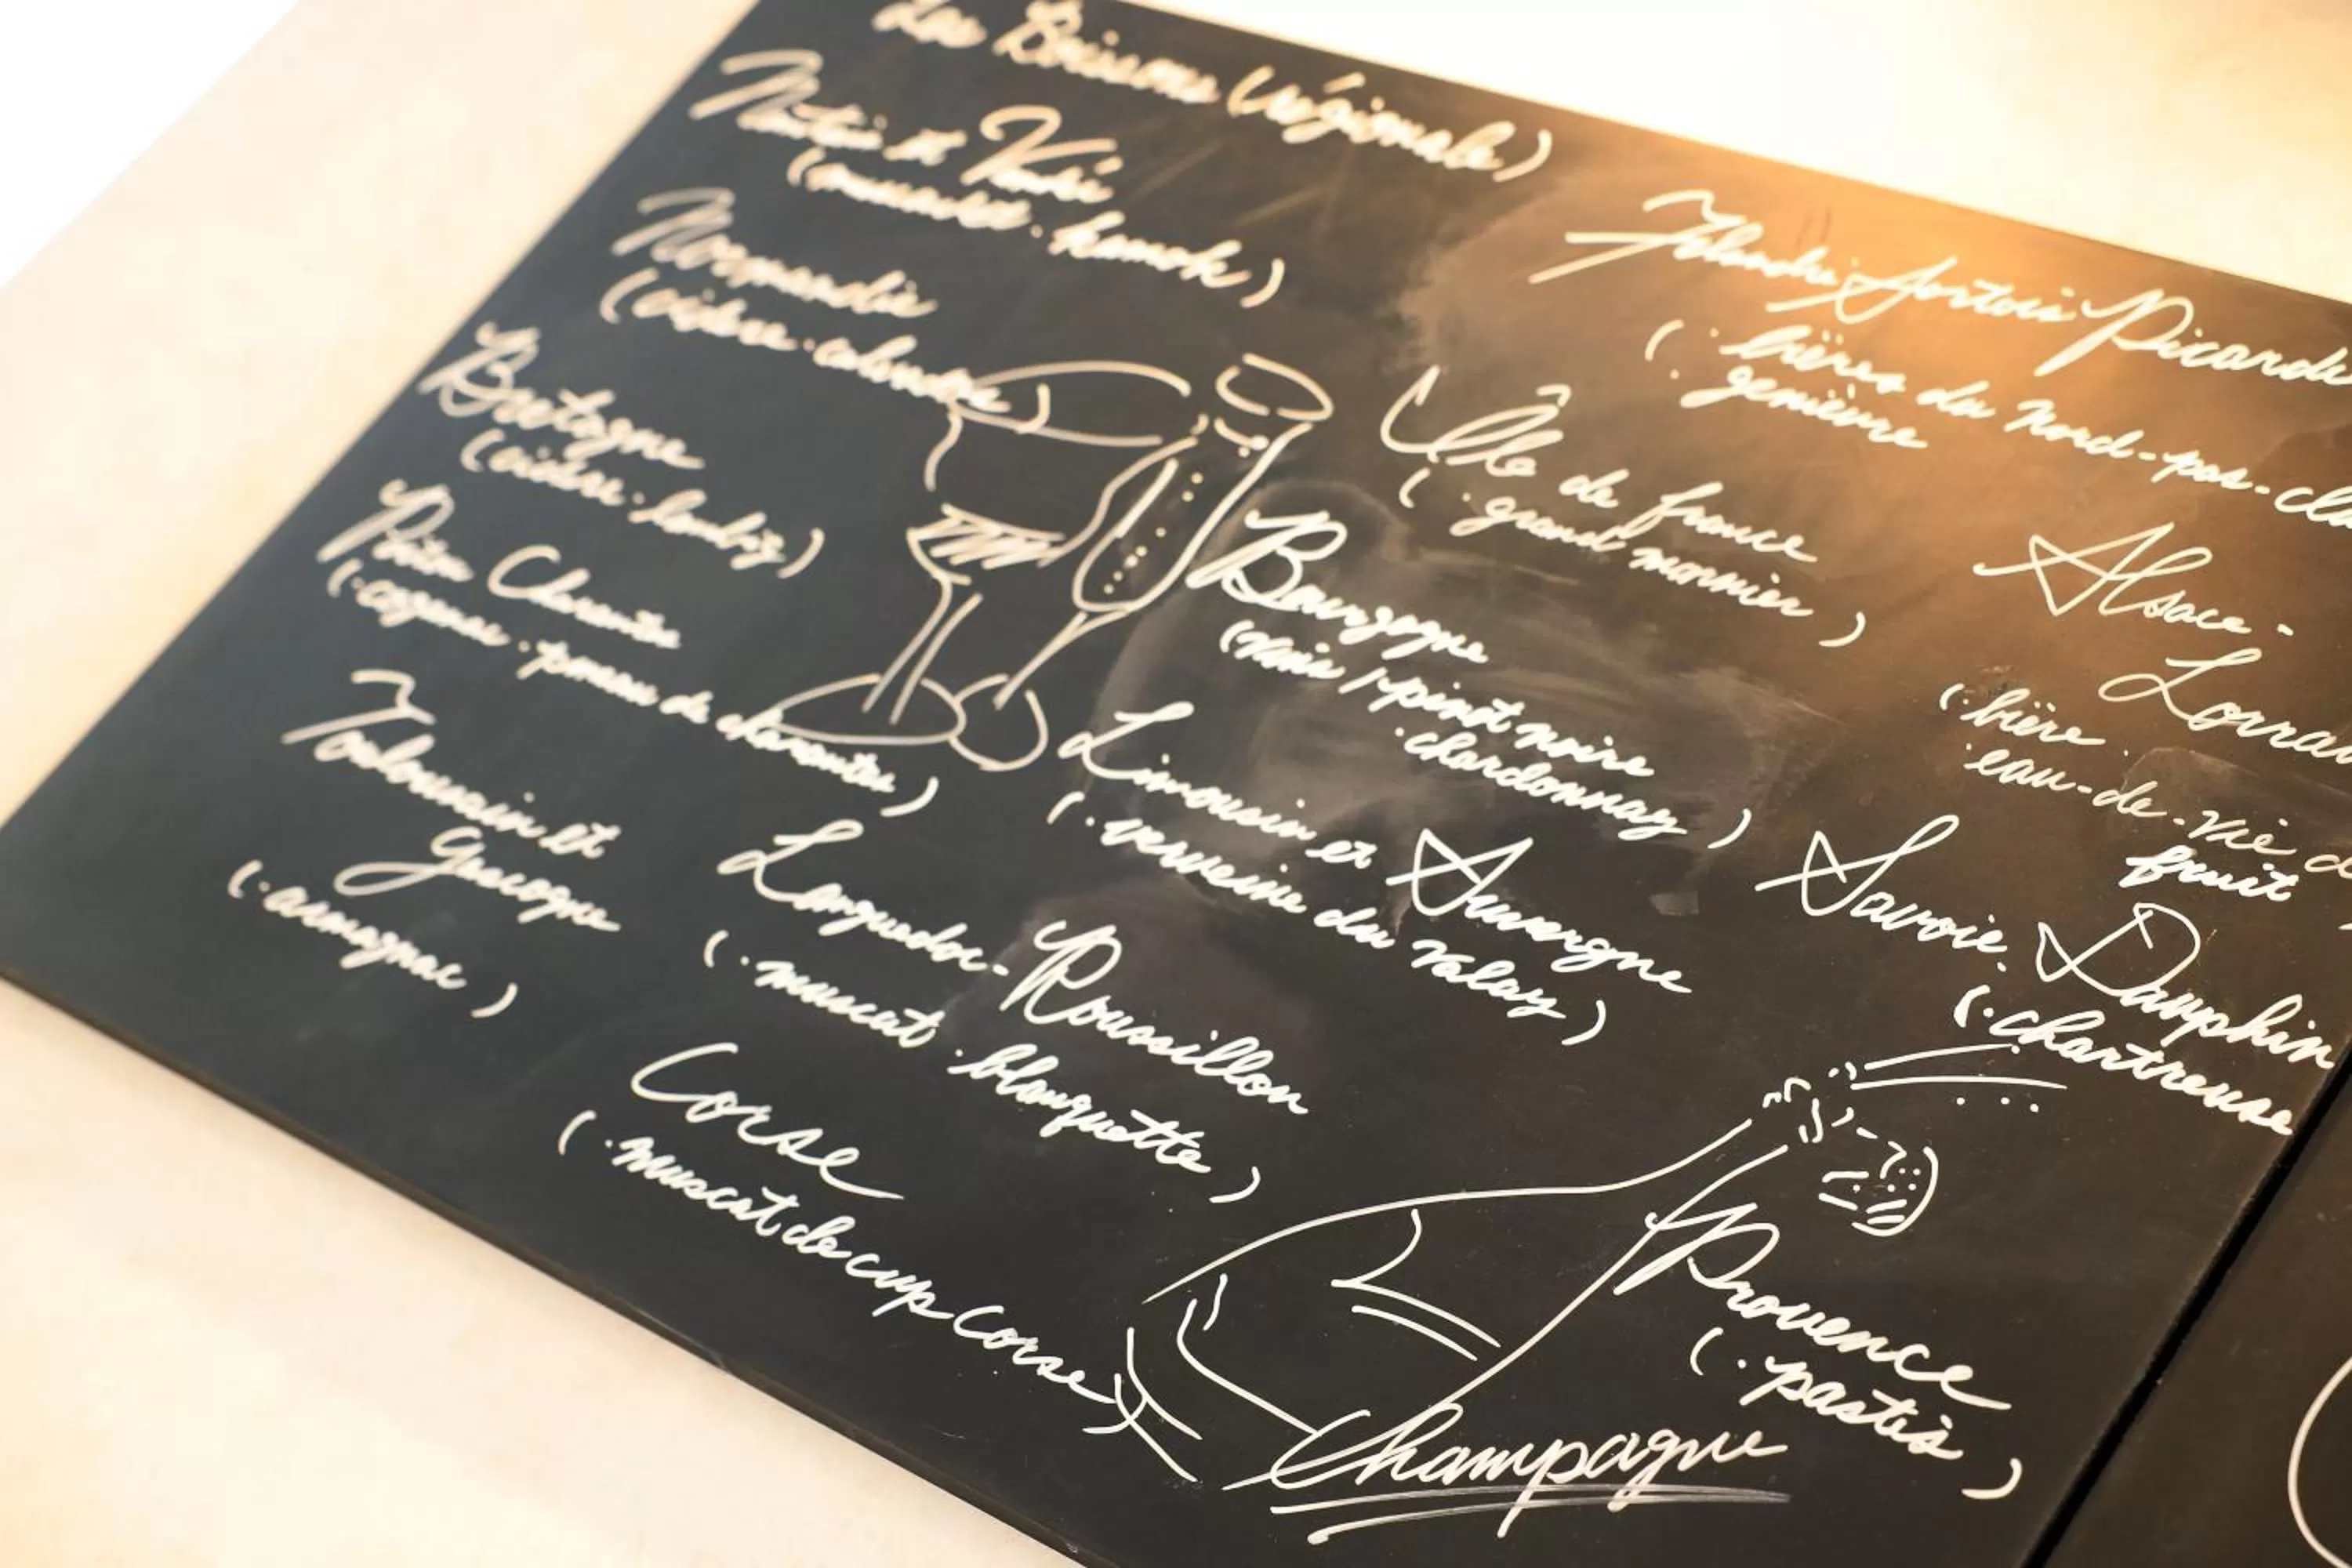 Les Boissons (régionale)
(muscadet . kamok)
Normandie
(cidre . calvados)
Bretagne
(cidre . lambig)
Poitou Charentes
(. cognac . pineau de charentes)
Toulousain et
Gascogne
(. armagnac)
Languedoc-Roussillon
(. muscat . blanquette)
Corse
(. muscat de cup Corse)
Flandre Artois Picardie
(. bières du nord-pas-cla
. genièvre
Île de france
(. grand marnier)
Bourgogne
(vin / . pinot noire
. chardonnay)
Limousin et Auvergne
(. verveine du Velay)
Alsace-
Lorrai
(. bière .
. eau-de-vie d
fruit
Savoie. Dauphin
(. chartreuse
Provence
(. pastis)
Champagne